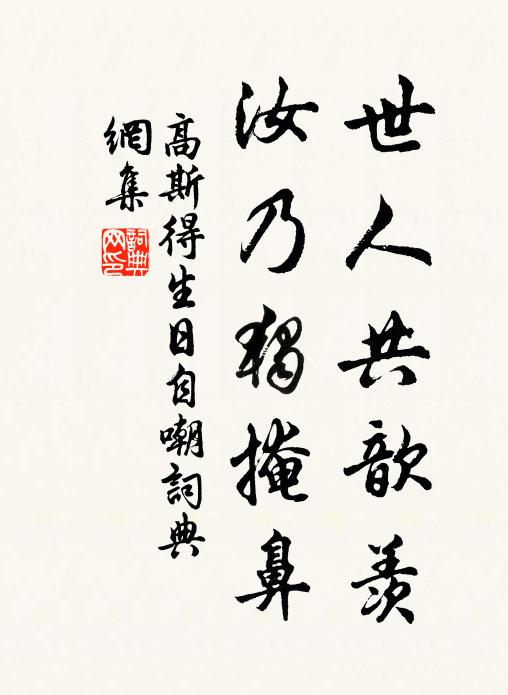 世人共歆羨
汝乃獨掩鼻
高斯得生日自嘲詞典
網集
詞典網印